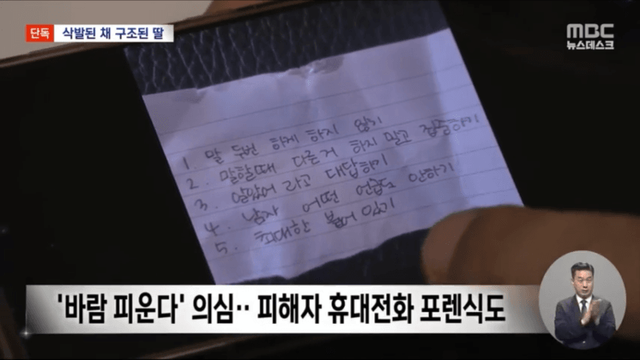 단독 삭발된 채 구조된 딸
MBC
뉴스데스크
1 말 두번 하게 하지 않기
2. 말할때 다른거 하지 말고 집중하기
3. 알았어 라고 대답하기
4. 남자 어떤 언급도 안하기
5. 최대한 붙어 있기
'바람 피운다' 의심‥ 피해자 휴대전화 포렌식도